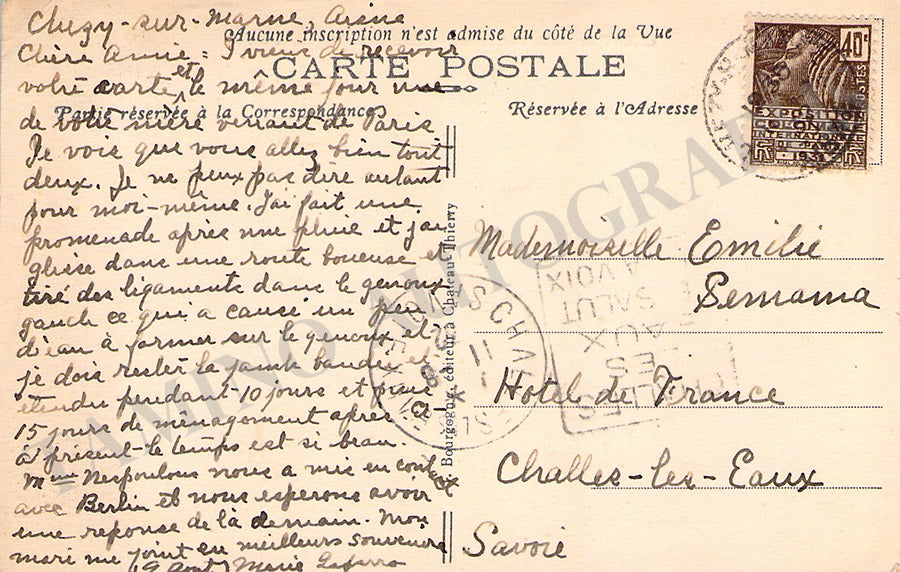 Chezy-sur-Marne, Aisne
Chère Annie: Je viens de recevoir
votre carte et le même jour une
de votre mère venant de Paris
Je vois que vous allez bien tout
deux. Je ne peux pas dire autant
pour moi-même. J'ai fait une
promenade après une pluie et j'ai
glissé dans une route boueuse et
tiré des ligaments dans le genoux
gauche ce qui a causé un peu
d'eau à former sur le genoux, et
je dois rester la jambe bandée et
étendu pendant 10 jours et puis
15 jours de ménagement après
à présent le temps est si beau.
Mme Nespoulous nous a mis en contaux
avec Berlin et nous esperons avoir
une reponse de là demain. Mon
mari me joint en meilleurs souvenirs
(9 Août) Marie
Aucune inscription n'est admise du côté de la Vue
CARTE POSTALE
Partie réservée à la Correspondance
Réservée à l'Adresse
Bourgogne, éditeur à Chateau-Thierry
40c
POSTES
EXPOSITION
COLONIALE
INTERNATIONALE
DE PARIS
1931
RF
Mademoiselle Emilie
Semama
Hotel de France
Challes-les-Eaux
Savoie
TAMINO AUTOGRAPHS